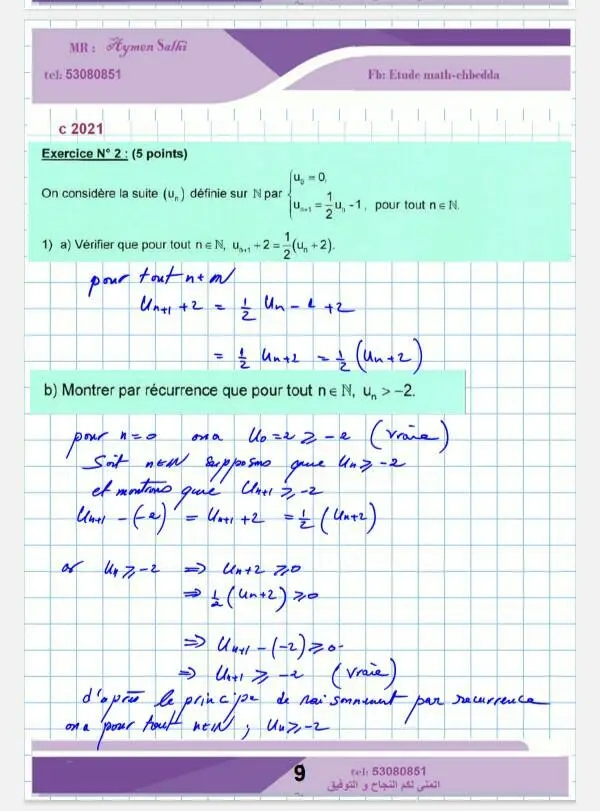 MR : Aymen Salhi
tel: 53080851
Fb: Etude math-chbedda
c 2021
Exercice N° 2 : (5 points)
On considère la suite (uₙ) définie sur ℕ par { u₀ = 0,
uₙ₊₁ = 1/2 uₙ - 1 , pour tout n ∈ ℕ.
1) a) Vérifier que pour tout n ∈ ℕ, uₙ₊₁ + 2 = 1/2 (uₙ + 2).
pour tout n ∈ ℕ
Uₙ₊₁ + 2 = 1/2 Uₙ - 1 + 2
= 1/2 Uₙ+2 = 1/2 (Uₙ+2)
b) Montrer par récurrence que pour tout n ∈ ℕ, uₙ > −2.
pour n = 0 on a U₀ = 2 ⩾ -2 (vraie)
Soit n ∈ ℕ supposns que Uₙ ⩾ -2
et montrons que Uₙ₊₁ ⩾ -2
Uₙ₊₁ - (-2) = Uₙ₊₁ + 2 = 1/2 (Uₙ+2)
or Uₙ ⩾ -2 ⇒ Uₙ+2 ⩾ 0
⇒ 1/2 (Uₙ+2) ⩾ 0
⇒ Uₙ₊₁ - (-2) ⩾ 0
⇒ Uₙ₊₁ ⩾ -2 (vraie)
d'après le principe de raisonnement par recurrence
on a pour tout n ∈ ℕ ; Uₙ ⩾ -2
9
tel: 53080851
اتمنى لكم النجاح و التوفيق